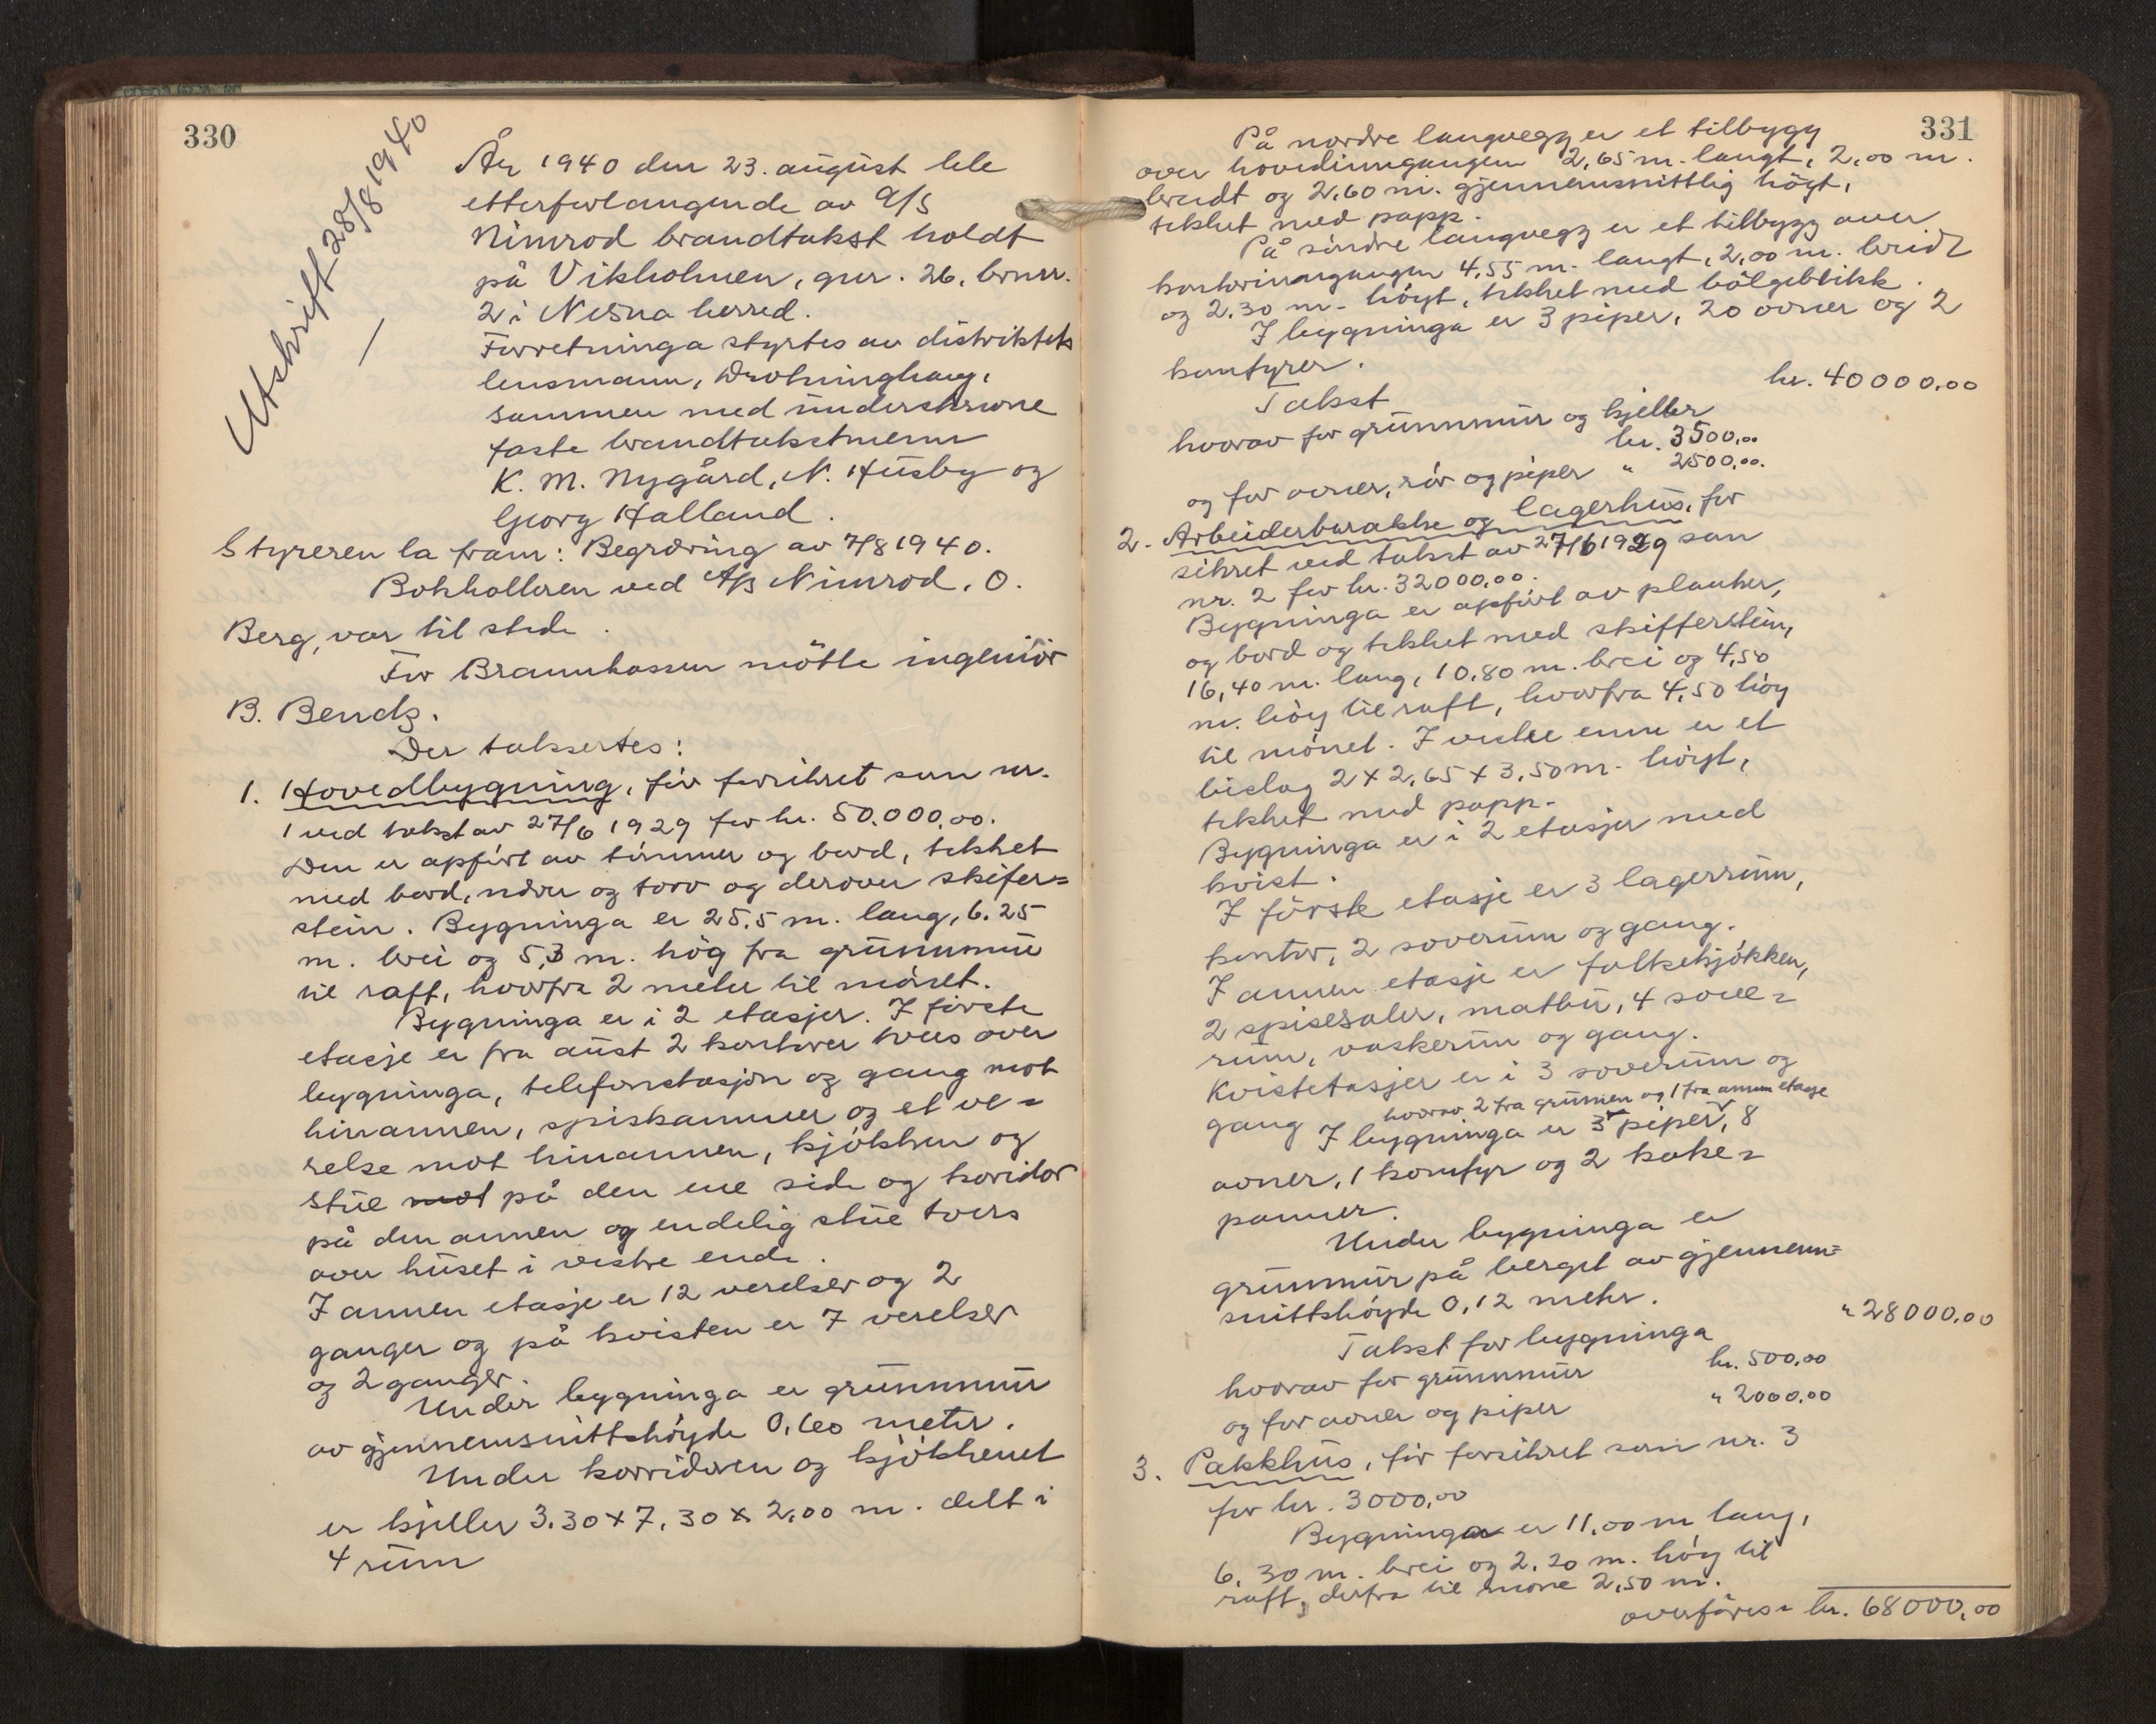 330
Utskrift 28/8 1940
År 1940 den 23. august ble
etterforlangende av A/S
Nimrod brandtakst holdt
på Vikholmen, gnr. 26, brnr.
2 i Nesna herred.
Forretninga styrtes av distriktets
lensmann, Drotninghaug,
sammen med underskrevne
faste brandtakstmenn
K. M. Nygård, N. Husby og
Georg Halland.
Styreren la fram: Begjæring av 7/8 1940.
Bokholleren ved A/S Nimrod, O.
Berg, var til stede.
For Brannkassen mötte ingeniör
B. Bendz.
Der taksertes:
1. Hovedbygning, för forsikret som nr.
1 ved takst av 27/6 1929 for kr. 50.000,00.
Den er opfört av tömmer og bord, tekket
med bord, never og torv og derover skifer=
stein. Bygninga er 25,5 m. lang, 6.25
m. brei og 5,3 m. hög fra grunnmur
til raft, hvorfra 2 meter til mönet.
Bygninga er i 2 etasjer. I förste
etasje er fra aust 2 kontorer tvers over
bygninga, telefonstasjon og gang mot
hinannen, spiskammer og et væ=
relse mot hinannen, kjökken og
stue mot på den ene side og koridor
på den annen og endelig stue tvers
over huset i vestre ende.
I annen etasje er 12 verelser og 2
ganger og på kvisten er 7 verelser
og 2 ganger.
Under bygninga er grunnmur
av gjennemsnittshöyde 0,60 meter.
Under korridoren og kjökkenet
er kjeller 3.30 x 7,30 x 2,00 m. delt i
4 rum
331
På nordre langvegg er et tilbygg
over hovedinngangen 2,65 m. langt, 2,00 m.
bredt og 2,60 m. gjennemsnittlig högt,
tekket med papp.
På söndre langvegg er et tilbygg over
kontorinngangen 4,55 m. langt, 2,00 m. breidt
og 2.30 m. höyt, tekket med bölgeblikk.
I bygninga er 3 piper, 20 ovner og 2
komfyrer.
Takst kr. 40000,00
hvorav for grunnmur og kjeller
kr. 3500,00
og for ovner, rör og piper " 2500,00.
2. Arbeiderbarakke og lagerhus, for
sikret ved takst av 27/6 1929 som
nr. 2 for kr. 32000,00.
Bygninga er opfört av planker,
og bord og tekket med skifferstein,
16,40 m. lang, 10,80 m. brei og 4,50
m. höy til raft, hvorfra 4,50 höy
til mönet. I vestre enne er et
bislag 2 x 2,65 x 3,50 m. höyt,
tekket med papp.
Bygninga er i 2 etasjer med
kvist.
I förste etasje er 3 lagerrum,
kontor, 2 soverum og gang.
I annen etasje er folkekjökken,
2 spisesaler, matbu, 4 sove=
rum, vaskerum og gang.
Kvistetasjer er i 3 soverum og
gang
hvorav 2 fra grunnen og 1 fra annen etasje
I bygninga er 3 piper, 8
ovner, 1 komfyr og 2 koke=
panner.
Under bygninga er
grunnmur på berget av gjennem=
snittshöyde 0,12 meter.
Takst for bygninga " 28000,00
hvorav for grunnmur kr. 500,00
og for ovner og piper " 2000,00
3. Pakkhus, för forsikret som nr. 3
for kr. 3000,00
Bygninga er 11,00 m lang,
6,30 m. brei og 2,20 m. höy til
raft, derfra til möne 2,50 m.
overföres kr. 68000,00